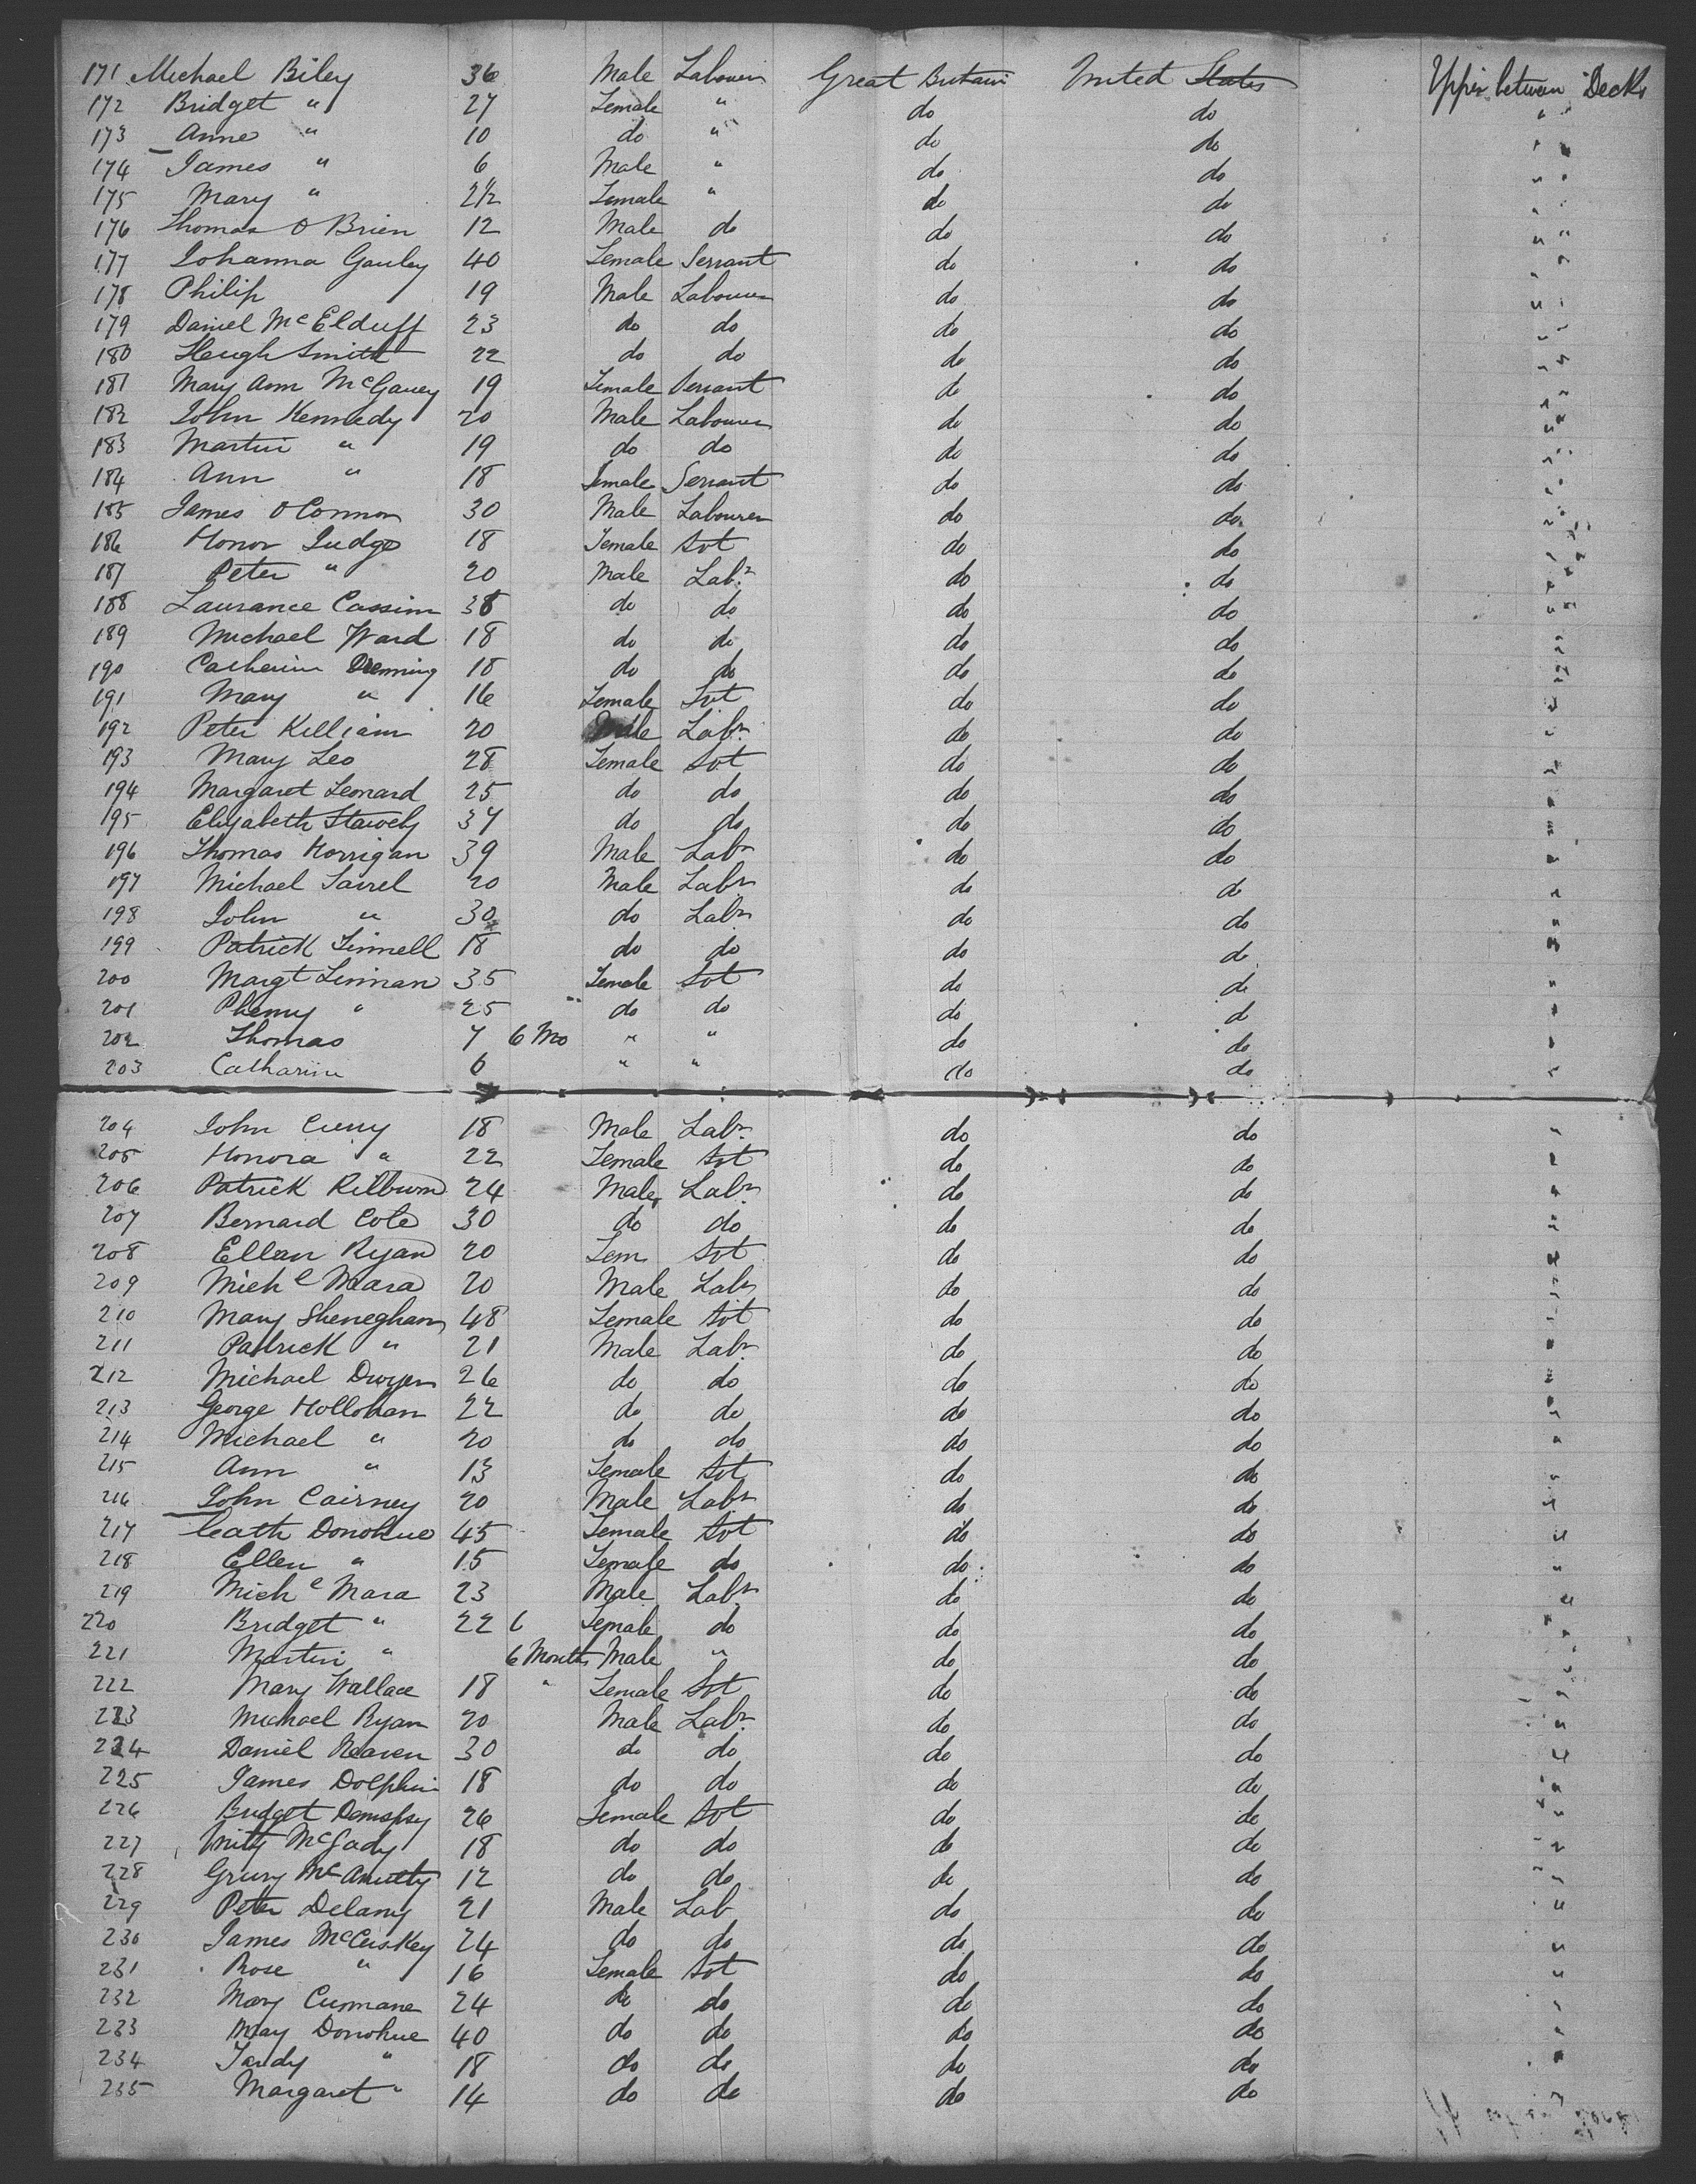 171 Michael Biley 36 Male Labourer Great Britain United States Upper between Decks
172 Bridget " 27 Female " do do " "
173 Anne " 10 do " do do " "
174 James " 6 Male " do do " "
175 Mary " 2 1/2 Female " do do " "
176 Thomas O Brien 12 Male do do do " "
177 Johanna Gauley 40 Female Servant do do " "
178 Philip 19 Male Labourer do do " "
179 Daniel McElduff 23 do do do do " "
180 Hugh Smith 22 do do do do " "
181 Mary Ann McGaney 19 Female Servant do do " "
182 John Kennedy 20 Male Labourer do do " "
183 Martin " 19 do do do do " "
184 Ann " 18 Female Servant do do " "
185 James O Connor 30 Male Labourer do do " "
186 Honor Judge 18 Female Svt do do "
187 Peter " 20 Male Labr do do "
188 Laurance Cassim 38 do do do do "
189 Michael Ward 18 do do do do "
190 Catherine 18 do do do do "
191 Mary " 16 Female Svt do do "
192 Peter Killiam 20 Male Labr do do "
193 Mary Leo 28 Female Svt do do "
194 Margaret Leonard 25 do do do do "
195 Elizabeth 37 do do do do "
196 Thomas Horrigan 39 Male Labr do do "
197 Michael Farrel 20 Male Labr do do "
198 John " 30 do Labr do do "
199 Patrick Finnell 18 do do do do "
200 Margt Linnan 35 Female Svt do do "
201 Phemy " 25 do do do do "
202 Thomas 7 6 Mo " " do do "
203 Catharine 6 " " do do "
204 John Curry 18 Male Labr do do "
205 Honora " 22 Female Svt do do "
206 Patrick Kilburn 24 Male Labr do do "
207 Bernard Cole 30 do do do do "
208 Ellen Ryan 20 Fem Svt do do "
209 Michl Meara 20 Male Labr do do "
210 Mary Sheneghan 48 Female Svt do do "
211 Patrick " 21 Male Labr do do "
212 Michael Dwyer 26 do do do do "
213 George Hollohan 22 do do do do "
214 Michael " 20 do do do do "
215 Ann " 13 Female Svt do do "
216 John Cairney 20 Male Labr do do "
217 Cath Donohue 45 Female Svt do do "
218 Ellen " 15 Female do do do "
219 Michl Mara 23 Male Labr do do "
220 Bridget " 22 6 Female do do do "
221 Martin " 6 Months Male " do do "
222 Mary Wallace 18 " Female Svt do do "
223 Michael Ryan 20 Male Labr do do "
224 Daniel Neaven 30 do do do do "
225 James Dolphin 18 do do do do "
226 Bridget Demspsy 26 Female Svt do do "
227 Unity McGady 18 do do do do "
228 12 do do do do "
229 Peter Delany 21 Male Lab do do "
230 James McCuskey 24 do do do do "
231 Rose " 16 Female Svt do do "
232 Mary Cunnane 24 do do do do "
233 May Donohue 40 do do do do "
234 " 18 do do do do "
235 Margaret " 14 do do do do